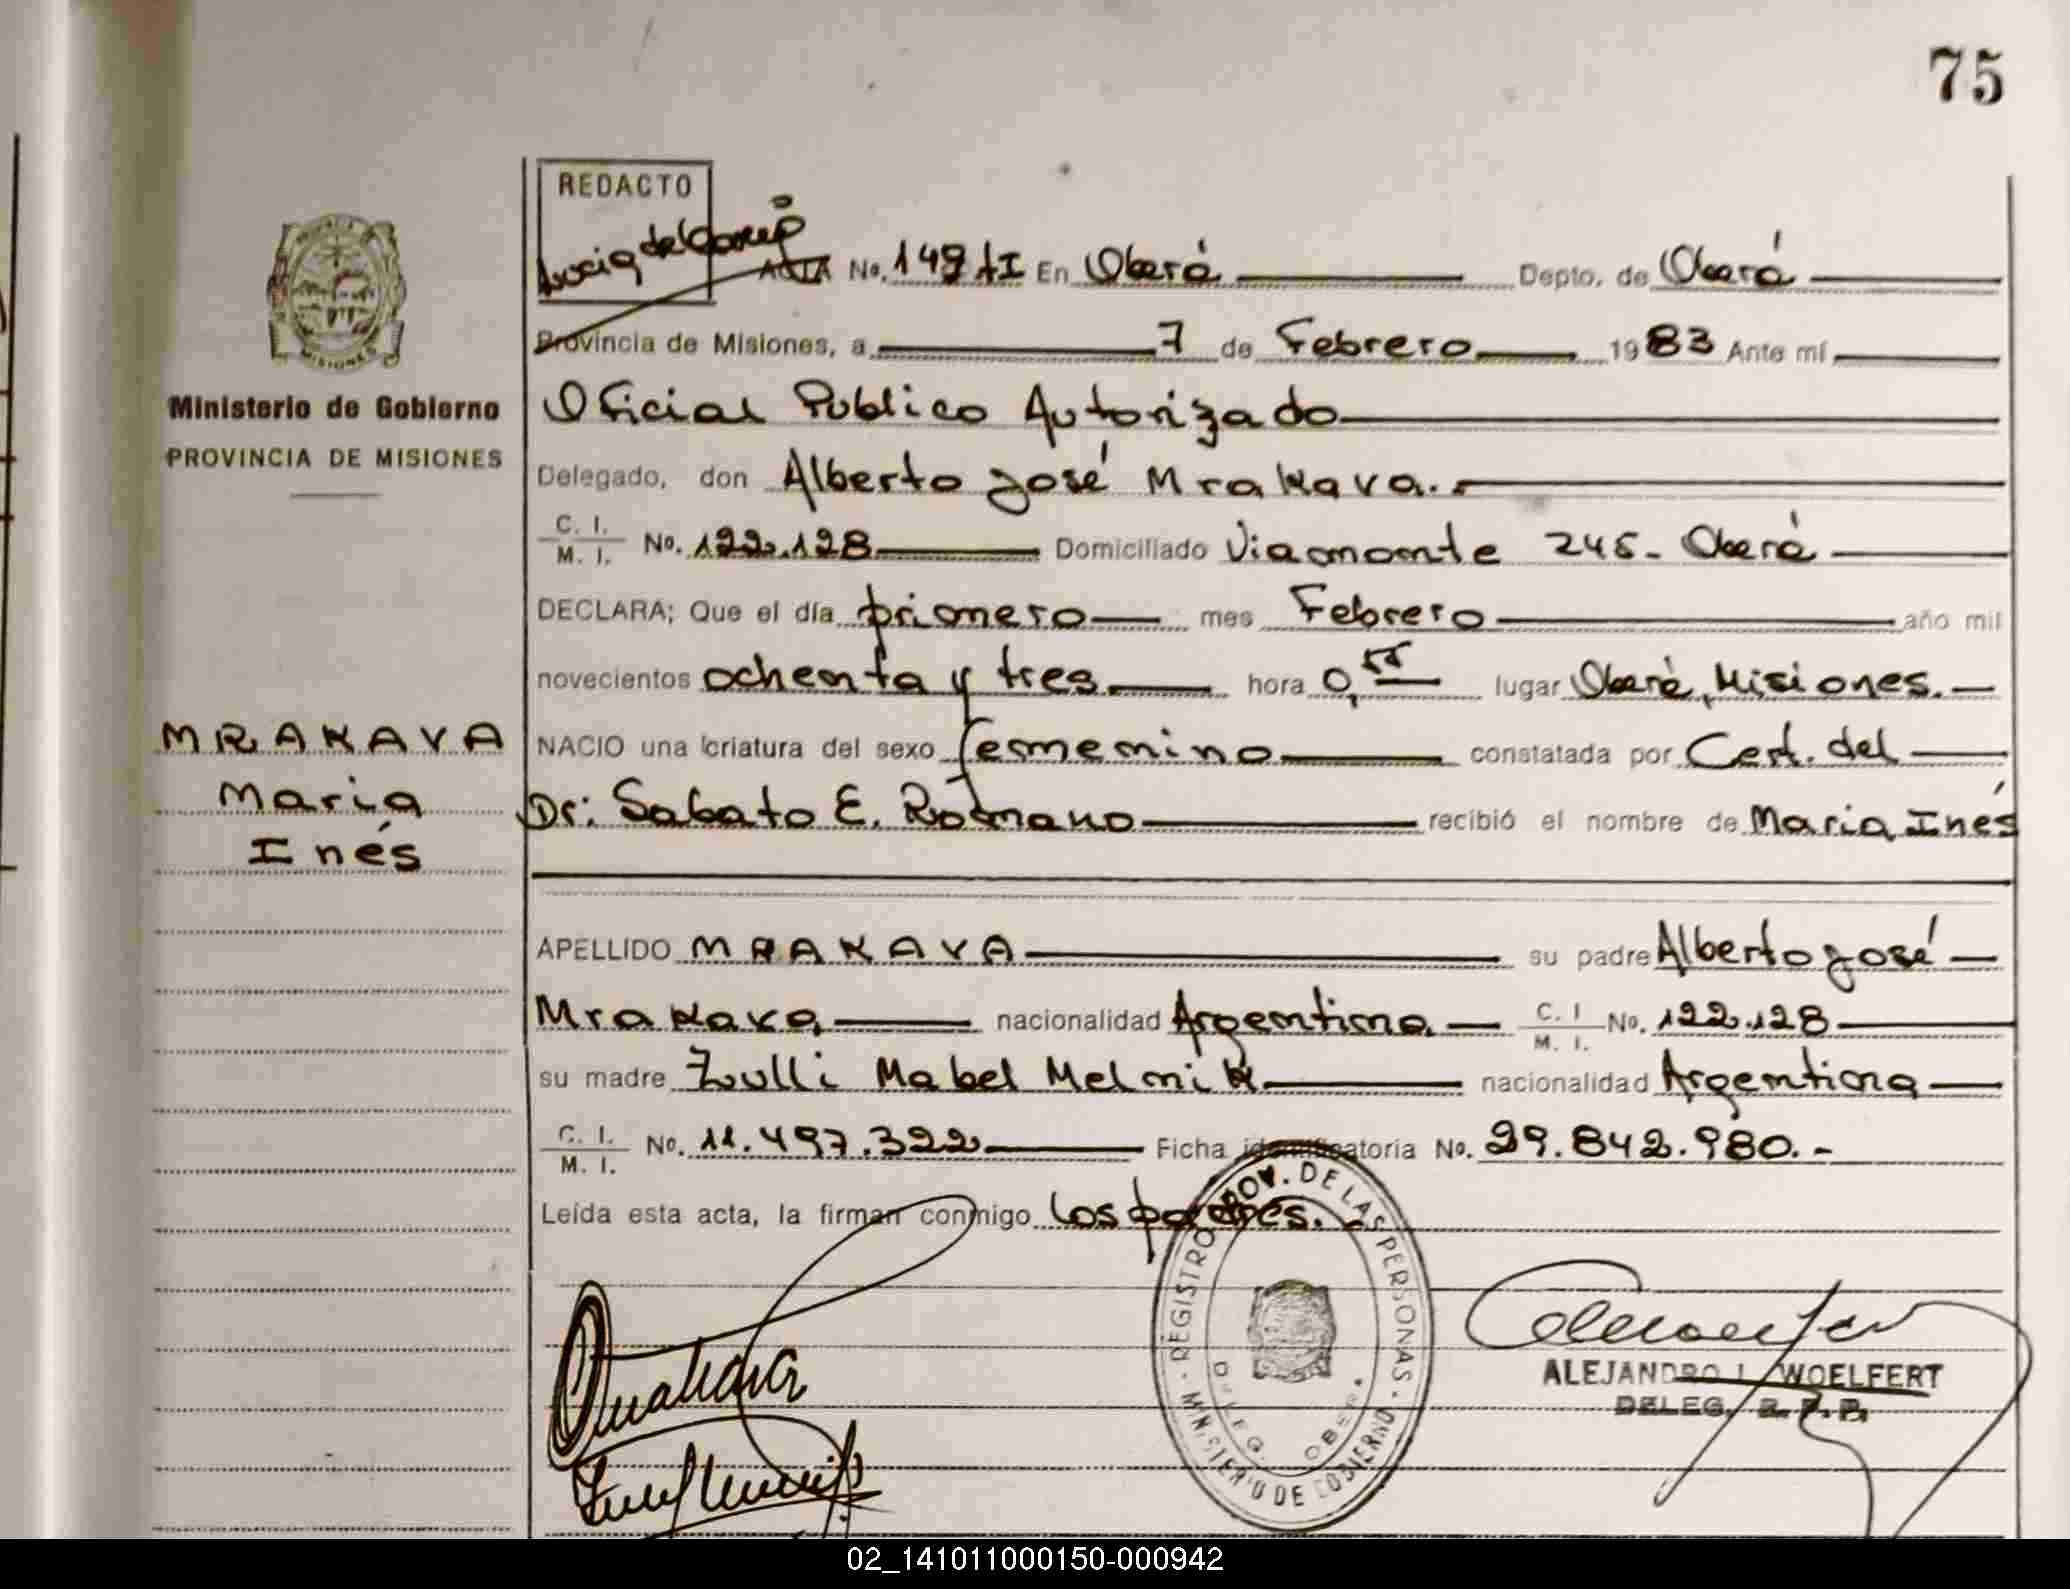 75
REDACTO
ACTA No. 149 tI En Oberá Depto. de Oberá
Provincia de Misiones, a 7 de Febrero 1983 Ante mí
Oficial Publico Autorizado
Ministerio de Gobierno
PROVINCIA DE MISIONES
Delegado, don Alberto José Mrakava.
C. I. M. I. No. 122.128 Domiciliado Viamonte 245- Oberá
DECLARA; Que el día primero mes Febrero año mil
novecientos ochenta y tres hora 0, lugar Oberá, Misiones.
MRAKAVA
Maria
Inés
NACIO una criatura del sexo femenino constatada por Cert. del
Dr: Sabato E. Romano recibió el nombre de Maria Inés
APELLIDO MRAKAVA su padre Alberto José
Mrakava nacionalidad Argentina C. I M. I. No. 122.128
su madre Zulli Mabel Melnik nacionalidad Argentina
C. I. M. I. No. 11.497.322 Ficha identificatoria No. 29.842.980.-
Leída esta acta, la firman conmigo los padres.
REGISTRO PROV. DE LAS PERSONAS · MINISTERIO DE GOBIERNO
DELEG. OBERA
ALEJANDRO L. WOELFERT
DELEG. R. P. P.
02_141011000150-000942